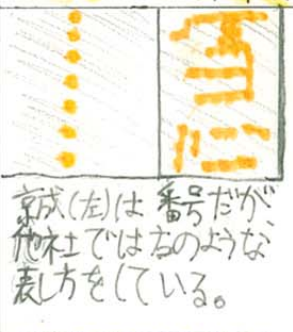 京成(左)は 番号だが、
他社では右のような
表し方をしている。